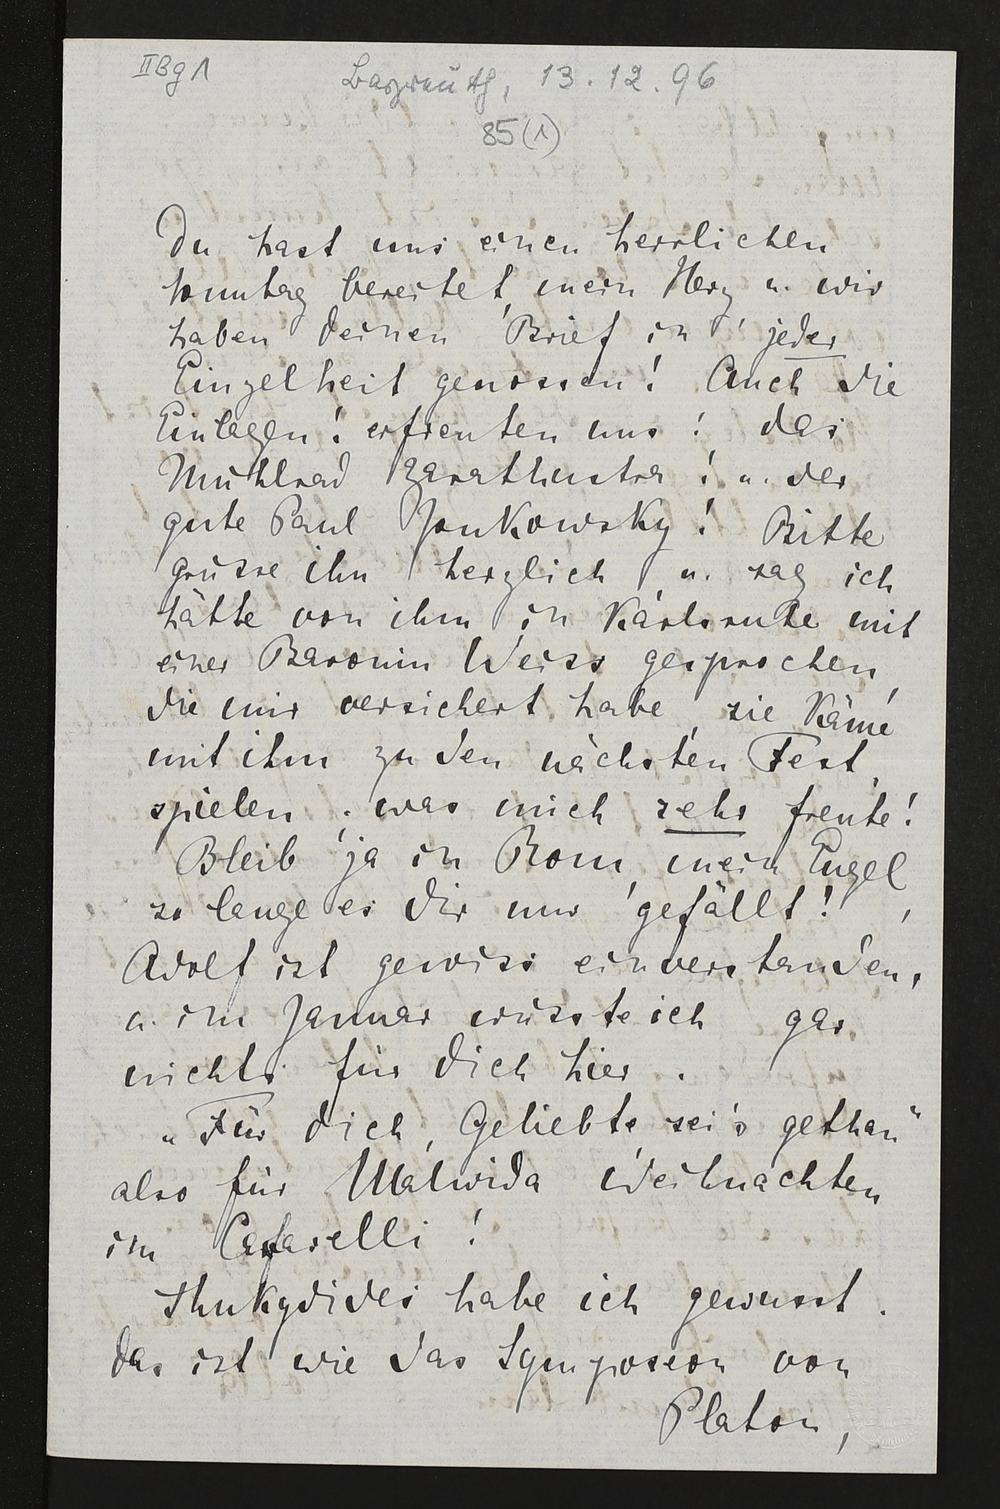 IIBg1
Bayreuth, 13.12.96
85(1)
Du hast uns einen herrlichen
Sonntag bereitet, mein Herz u. wir
haben deinen Brief in jeder
Einzelheit genossen! Auch die
Einlagen! erfreuten uns! das
Mühlrad Zarathustra! u. der
gute Paul Joukowsky! Bitte
grüsse ihn herzlich u. sag ich
hätte von ihm in Karlsruhe mit
einer Baronin Weiss gesprochen,
die mir versichert habe, sie käme
mit ihm zu den nächsten Fest,
spielen, was mich sehr freute!
Bleib ja in Rom, mein Engel,
so lange es dir nur gefällt!
Adolf ist gewiss einverstanden,
u. im Januar wüsste ich gar
nichts für dich hier.
„Für dich, Geliebte sei's gethan"
also für Malwida Weihnachten
im Cafarelli!
Thukydides habe ich gewusst.
das ist wie das Symposion von
Platon,